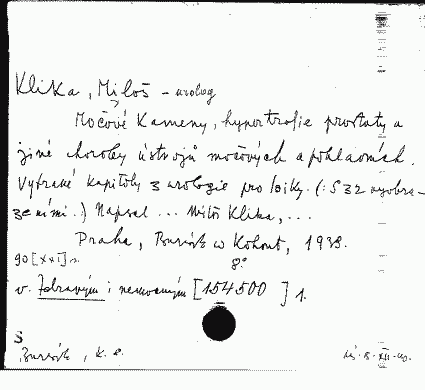 Klika, Miloš - urolog
Močové kameny, hypertrofie prostaty a
jiné choroby ústrojů močových a pohlavních.
Vybrané kapitoly z urologie pro laiky. (: S 32 vyobra-
zeními.) Napsal ... Miloš Klika, ...
Praha, Bursík & Kohout, 1938.
90 [XXI] s. 8°
v. Zdravým i nemocným [154500] 1.
S
Bursík, K. 8.